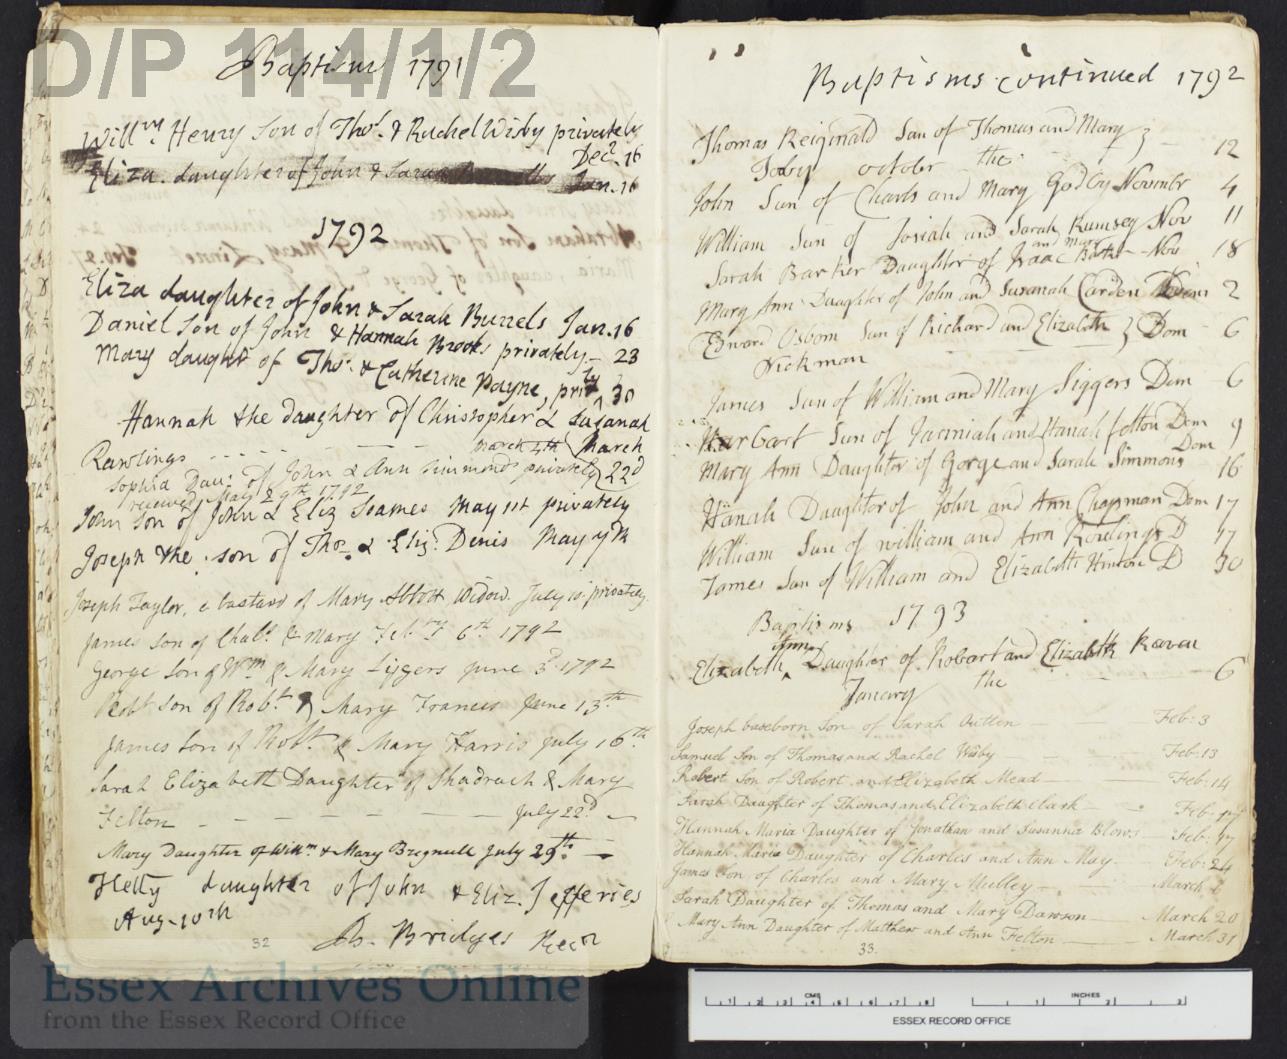 D/P 114/1/2
Baptism 1791
Willm Henry Son of Thos. & Rachel Wisby privately
Decr. 16
Eliza. daughter of John & Sarah Jan. 16
1792
Eliza daughter of John & Sarah Burrels Jan. 16
Daniel Son of John & Hannah Brooks privately – 23
Mary daughtr of Thos. & Catherine Payne, privly 30
Hannah the daughter of Christopher & Susanah
Rawlings - - - - - March 4th March
Sophia Dau: of John & Ann Simmonds privately 22d
received May 29th 1792
John Son of John & Eliz Soames May 1st privately
Joseph the son of Thos. & Eliz: Denis May 7th
Joseph Taylor, a bastard of Mary Abbott Widow. July 10. privately.
James Son of Chals. & Mary 6th 1792
George Son of Wm & Mary Siggers June 3d. 1792
Robt Son of Robt. & Mary Francis June 13th
James Son of Robt. & Mary Harris July 16th.
Sarah Elizabeth Daughter of Shadrach & Mary
Felton - - - - - - - July 22d
Mary Daughter of Willm & Mary Bregnull July 29th. –
Hetty daughter of John & Eliz. Jefferies
Aug. 10th
Bridges Recr
32
Baptisms continued 1792
Thomas Reiginald Sun of Thomas and Mary
Toby october the 12
John Sun of Charls and Mary Godby Novembr 4
William Sun of Josiah and Sarah Rumsey Nov 11
and Mary
Sarah Barker Daughter of Isaac Nov 18
Mary Ann Daughter of John and Susanah Carden 2
Edward Osborn Sun of Richard and Elizabeth Dom 6
Nickman
James Sun of William and Mary Siggers Dem 6
Harbart Sun of Jarmiah and Hanah felton Dem 9
Dom
Mary Ann Daughter of Gorge and Sarah Simmons 16
Hanah Daughter of John and Ann Chapman Dom 17
William Sun of william and Ann Rowlings D 17
James Sun of William and Elizabeth Hinton D 30
Baptisms 1793
Ann
Elizabeth Daughter of Robart and Elizabeth Raven
Janury the 6
Joseph baseborn Son of Sarah Outten — — Feb: 3
Samuel Son of Thomas and Rachel Wisby — — Feb: 13
Robert Son of Robert and Elizabeth Mead — Feb: 14
Sarah Daughter of Thomas and Elizabeth Clark — Feb: 17
Hannah Maria Daughter of Jonathan and Susanna Blows — Feb: 17
Hannah Maria Daughter of Charles and Ann May — Feb: 24
James Son of Charles and Mary Mulley — March 6
Sarah Daughter of Thomas and Mary Dawson — March 20
Mary Ann Daughter of Matthew and Ann Felton — March 31
33.
Essex Archives Online
from the Essex Record Office
CMS
1 2 3 4 5 6 7 8
INCHES
1 2 3
ESSEX RECORD OFFICE